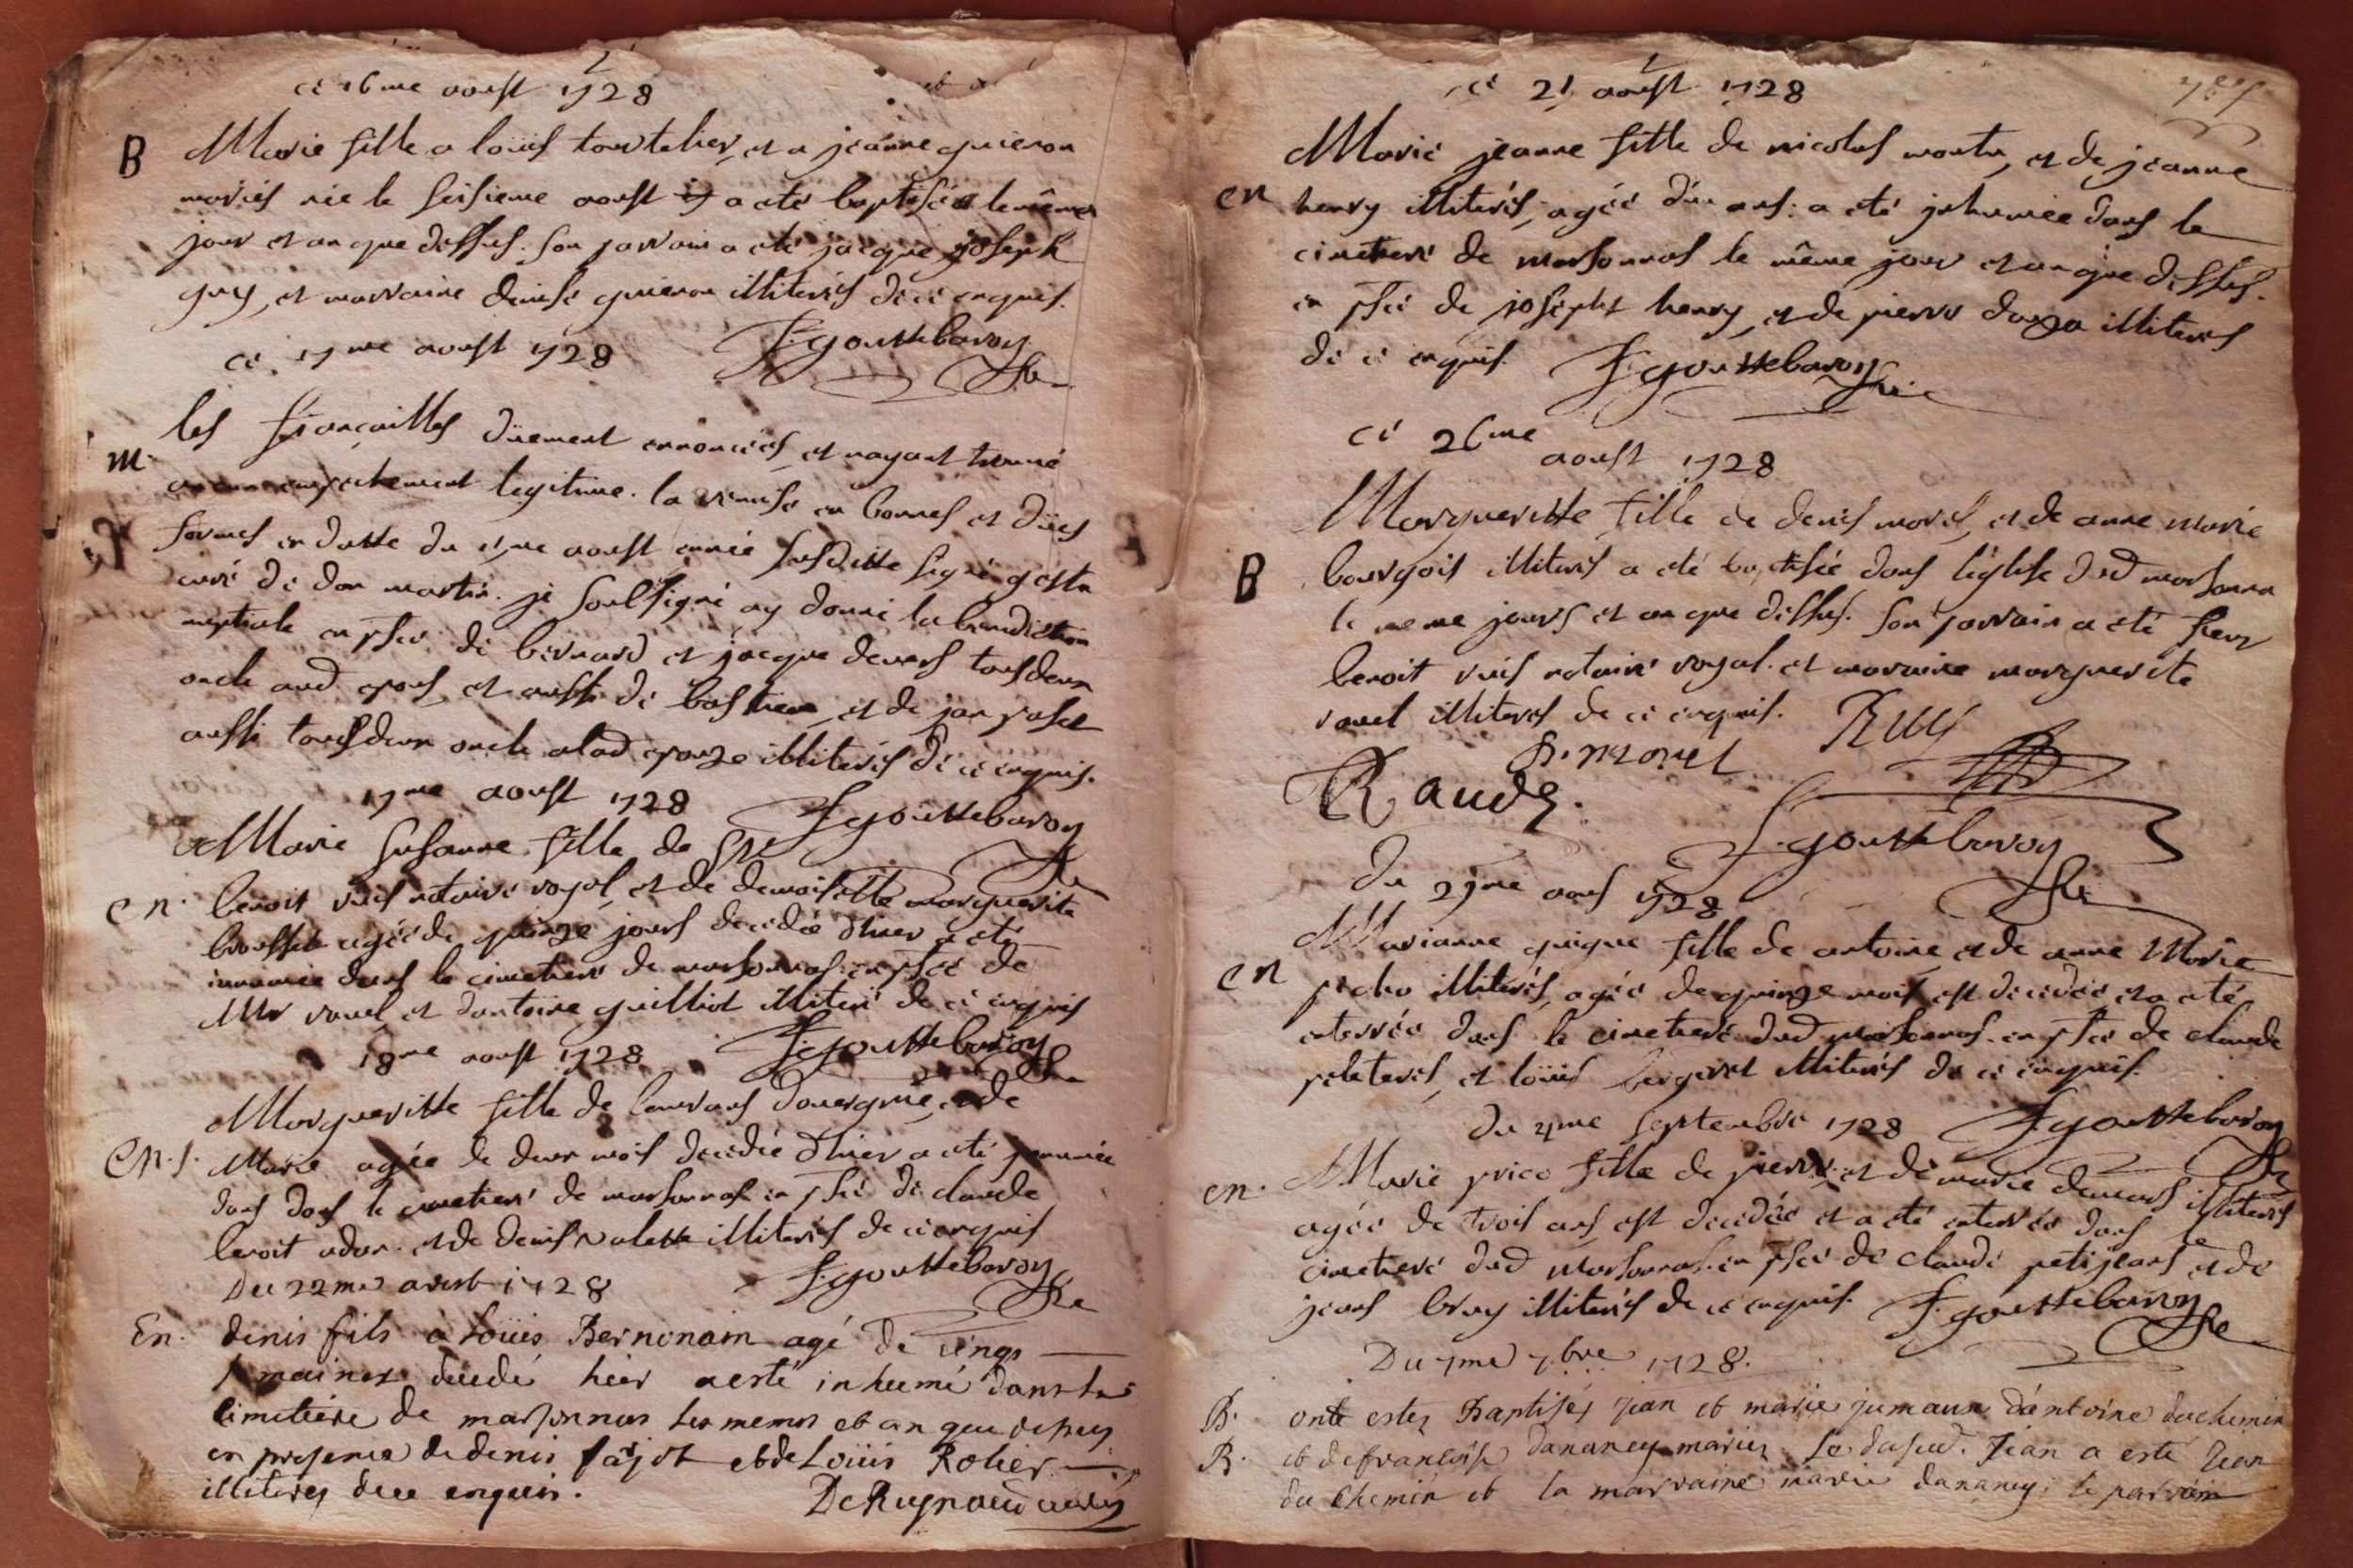 ce 16me aoust 1728
B Marie fille a loüis tourtelier, et a jeanne guieron
mariés née le seisieme aoust a été baptisée le même
jour et an que dessus. son parrain a été jacque joseph
guy, et marraine denise guieron illiterés de ce enquis.
ce 17me aoust 1728 F. gouttebaron
les fiancailles düement annoncées, et nayant trouvé
m aucun empechement legitime. la remise en bonnes et dües
formes en datte du me aoust année susditte signé
curé de dom martin. je soussigné ay donné la benediction
nuptiale en psce de bernard et jacque devers tousdeux
oncle aud epoux, et aussi de bastien, et de
aussi tousdeux oncle alad epouze illiterés de ce enquis.
17me aoust 1728 F gouttebaron
Marie Susanne fille de sre
en. benoit ruis notaire royal, et de demoiselle marguerite
brossette agée de quinze jours decedée d'hier a eté
innumée dans le cimetiere de marsonnas en psce de
Mr ravel et d'antoine guilliot illiteré de ce enquis
18me aoust 1728 F. gouttebaron
Margueritte fille de et de
en. s. Marie agée de deux mois decedée d'hier a eté innumée
dans dans le cimetiere de marsonnas en psce de claude
benoit adam. et de denis valette illiterés de ce enquis
Du 22me aoust 1728 F. gouttebaron
En. denis fils a Loüis Bernonain agé de cinqs
semaines decedé hier a esté inhumé dans le
cimetiere de marsonnas les memes et an que dessus
en presence de denis fajot et de Loüis Rolier
illiteres de ce enquis. DeRuynaud
ce 21 aoust 1728
Marie jeanne fille de nicolas, et de jeanne
en henry illiterés, agée d'un ans: a eté inhumée dans le
cimetiere de marsonnas le même jour et an que dessus.
en psce de joseph henry, et de pierre illiterés
de ce enquis. F. gouttebaron
ce 26me aoust 1728
Margueritte fille de denis morel, et de anne marie
B bourgois illiterés a eté baptisée dans léglise dud marsonna
le meme jours et an que dessus. son parrain a eté sieur
benoit ruis notaire royal. et maraine marguerite
ravel illiterés de ce enquis. Ruis
Morel
Raude.
F. gouttebaron
Du 27me aous 1728
Marianne guigue fille de antoine, et de anne Marie
en illiterés, agée de quinze mois est decedée et a eté
enterrée dans le cimetiere dud marsonnas. en psce de claude
et loüis bergeret illiterés de ce enquis.
Du me septembre 1728 F gouttebaron
en. Marie fille de pierre, et de marie illiterés
agée de trois ans, est decedée et a eté enterrée dans le
cimetiere dud marsonnas. en psce de claude petitjeans et de
jeans bruy illiterés de ce enquis. F. gouttebaron
Du 7me 7bre 1728.
B. onte estez Baptisez Jean et marie jumaux d'antoine duchemin
B. et de francoise dananey mariez. Le Jean a esté Jean
du Chemin et la marraine marie dananey: le parrain